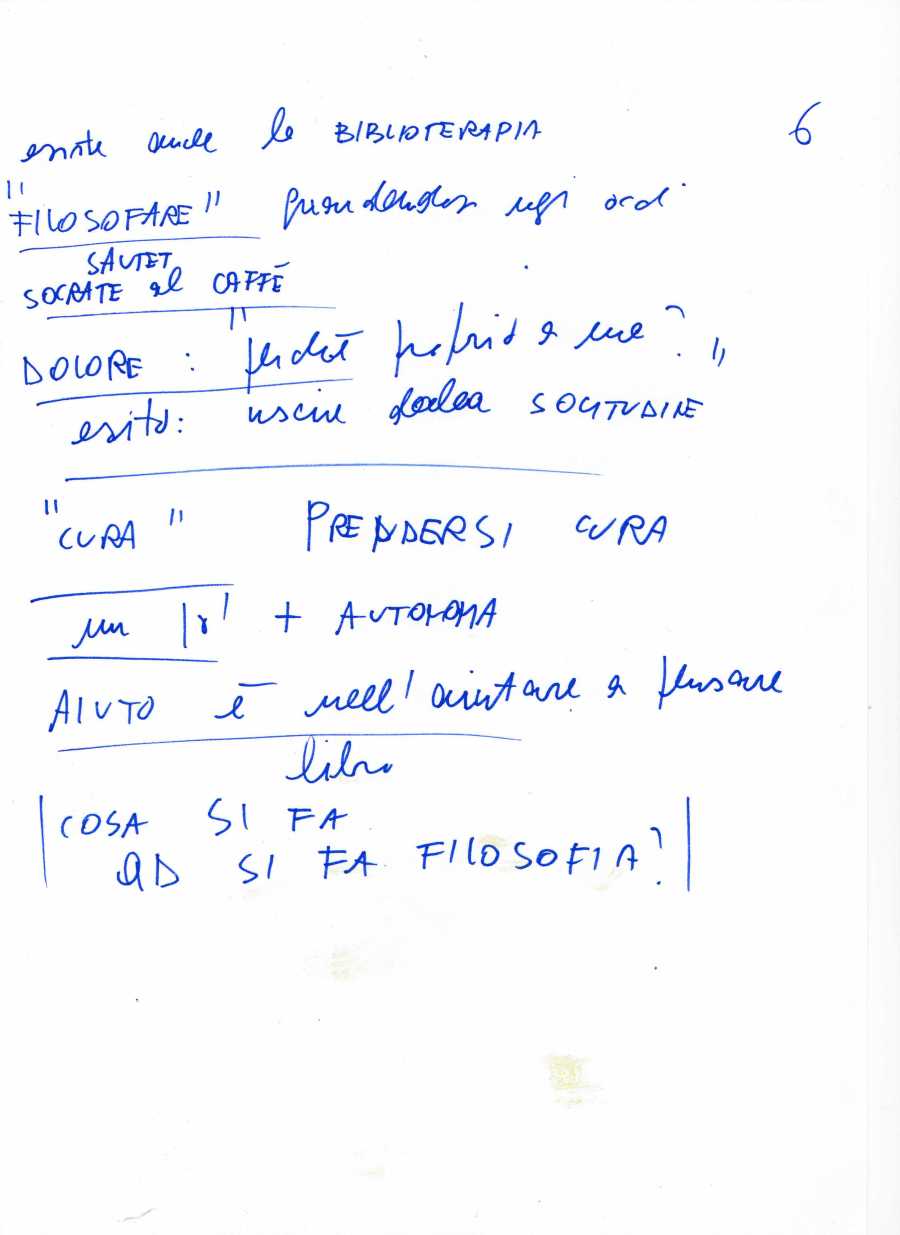 esiste anche la BIBLIOTERAPIA 6
"FILOSOFARE"
SAUTET
SOCRATE al CAFFÈ
DOLORE : "perché proprio a me?"
esito: uscire dalla SOLITUDINE
"CURA" PRENDERSI CURA
un + AUTONOMA
AIUTO è nell'aiutare a pensare
libro
COSA SI FA
QD SI FA FILOSOFIA?